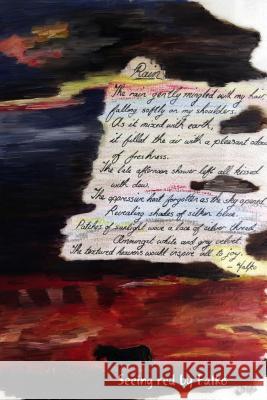 Rain
The rain gently mingled with my hair,
falling softly on my shoulders.
As it mixed with earth,
it filled the air with a pleasant odour
of freshness.
The late afternoon shower left all kissed
with dew.
The oppressive heat forgotten as the sky opened
Revealing shades of silken blue.
Patches of sunlight wove a lace of silver thread
Amongst white and grey velvet.
The textured heavens would inspire all to joy.
- Falko
Seeing red by Falko